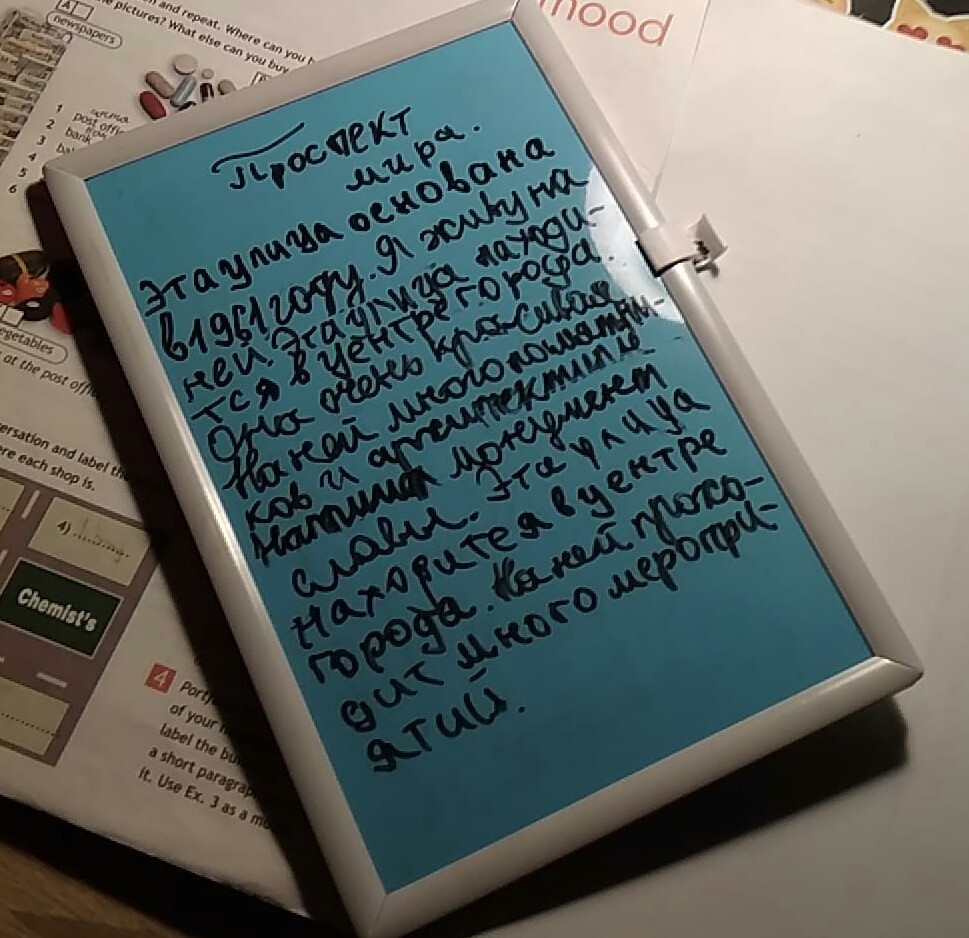 n and repeat. Where can you
e pictures? What else can you buy
A
newspapers
mood
1 post offi
2 bank
3 ba
4
5
6
egetables
at the post offi
ersation and label th
ere each shop is.
4)
Chemist's
4 Portf
of your
label the bu
a short paragrap
it. Use Ex. 3 as a mo
Проспект
мира.
Эта улица основана
в 1961 году. Я живу на
ней. Эта улица находи-
тся в центре города.
Она очень красивая
На ней много памятни-
ков и архитектуры
монумент
славы. Эта улица
находится в центре
города. На ней прохо-
дит много меропри-
ятий.